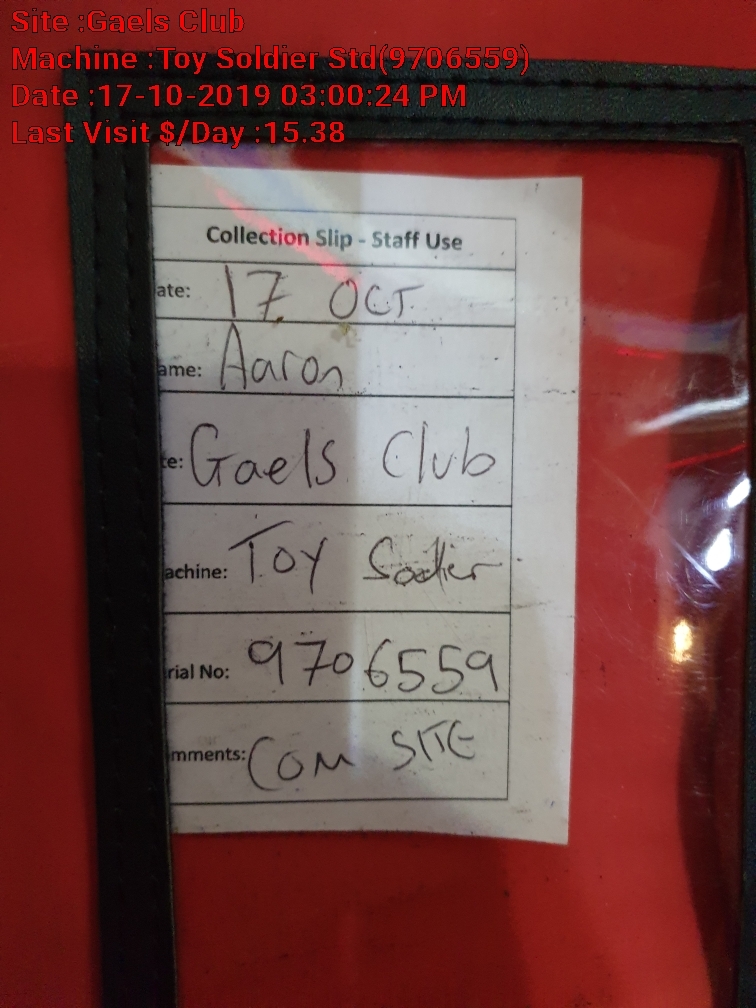 Site :Gaels Club
Machine :Toy Soldier Std(9706559)
Date :17-10-2019 03:00:24 PM
Last Visit $/Day :15.38
Collection Slip - Staff Use
ate: 17 OCT
ame: Aaron
te: Gaels Club
achine: TOY
rial No: 9706559
mments: COM SITE